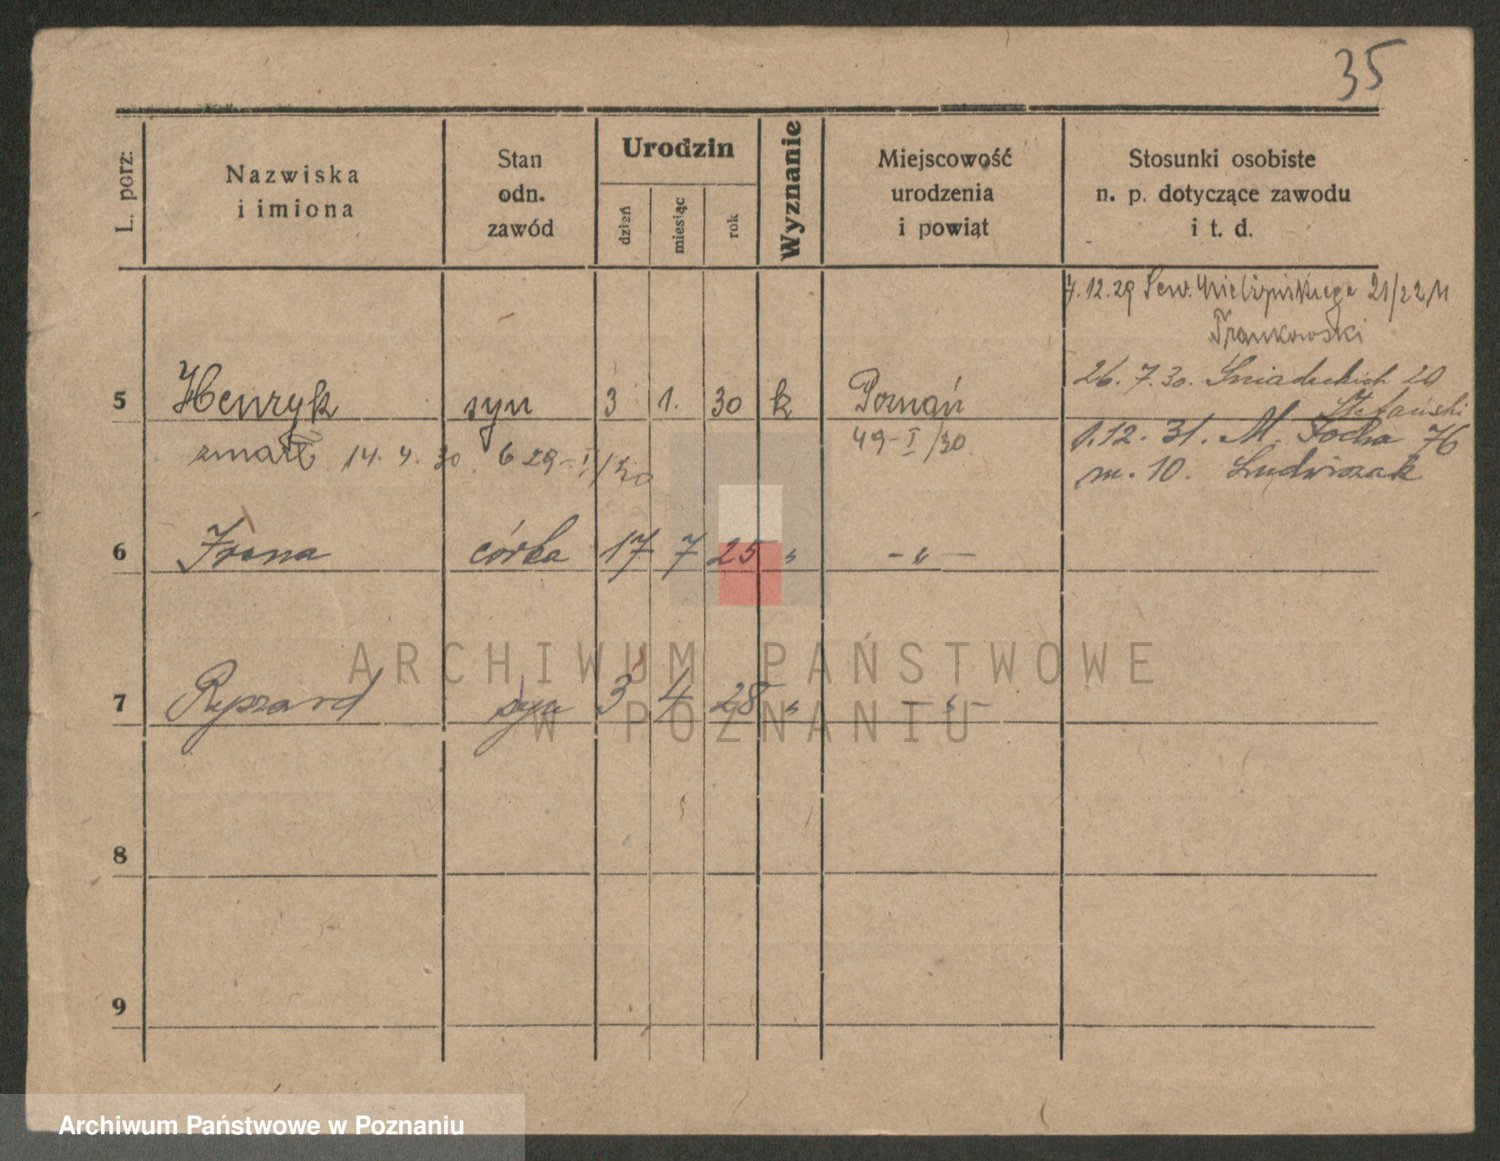 35
L. porz:
Nazwiska
i imiona
Stan
odn.
zawód
Urodzin
dzień
miesiąc
rok
Wyznanie
Miejscowość
urodzenia
i powiąt
Stosunki osobiste
n. p. dotyczące zawodu
i t. d.
7.12.29 Sew. Mielżyńskiego 21/22
Frankowski
26. 7. 30. Śniadeckich 20
Stefański
5 Henryk syn 3 1. 30 k Poznań
1.12. 31. M. Focha 76
zmarł 14. 4. 30. 629-I/30 49-I/30
m. 10. Ludwiczak
6 Irena córka 17 7 25 „ -„-
7 Ryszard syn 3 4 28 „ -„-
8
9
ARCHIWUM PAŃSTWOWE
W POZNANIU
Archiwum Państwowe w Poznaniu